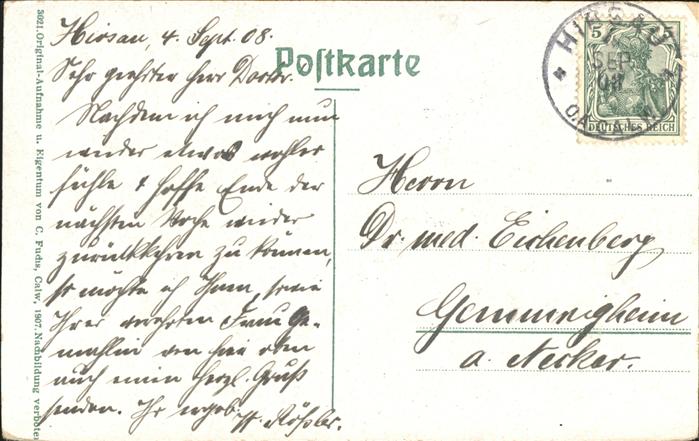 Hirsau, 4. Sept. 08.
Postkarte
Sehr geehrter Herr Doctor.
Nachdem ich mich nun
wieder etwas wohler
fühle & hoffe Ende der
nächsten Woche wieder
zurückkehren zu können,
so möchte ich Ihnen, sowie
Ihrer verehrten Frau Ge-
mahlin von hier oben
auch einen herzl. Gruß
senden. Ihr ergeb. Rößler.
Herrn
Dr. med. Eichenberg,
Gemmrigheim
a. Neckar.
HIRSAU
SEP
08
O.A.
5
DEUTSCHES REICH
3021. Original-Aufnahme u. Eigentum von C. Fuchs, Calw, 1907. Nachbildung verboten